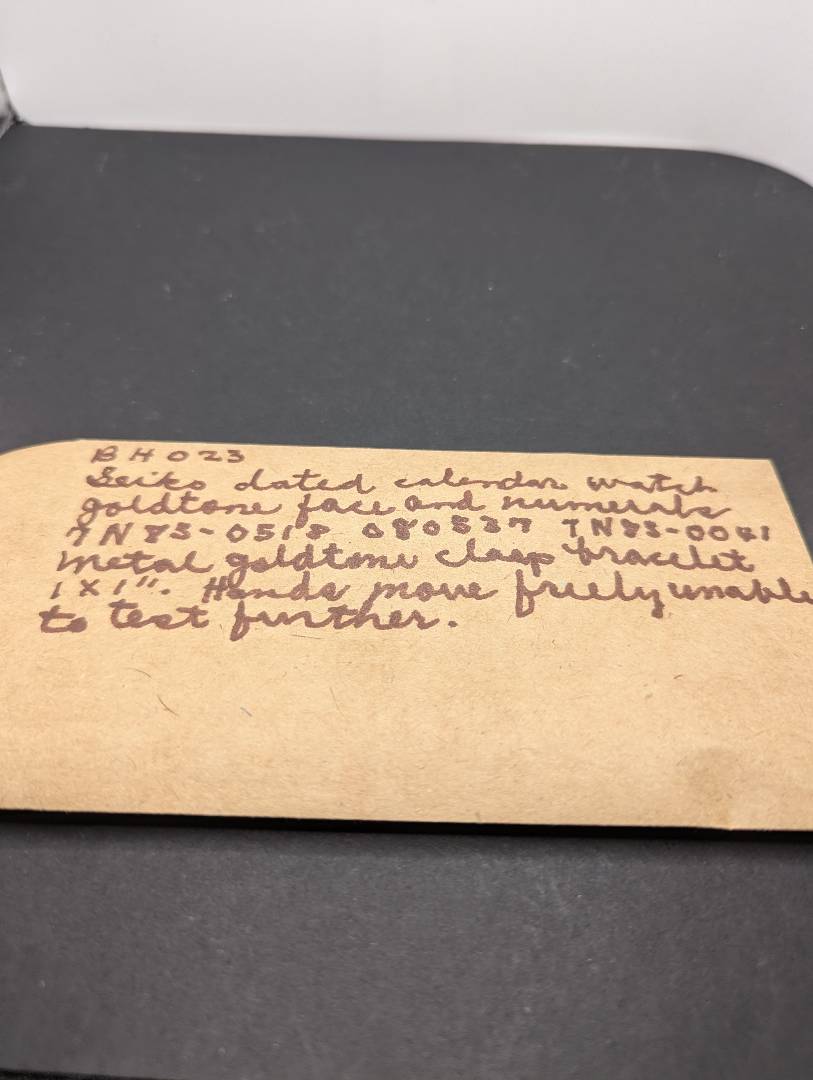 BH023
Seiko dated calendar watch
goldtone face and numerals
7N83-0518 080537 7N83-0041
Metal goldtone clasp bracelet
1x1". Hands move freely unable
to test further.